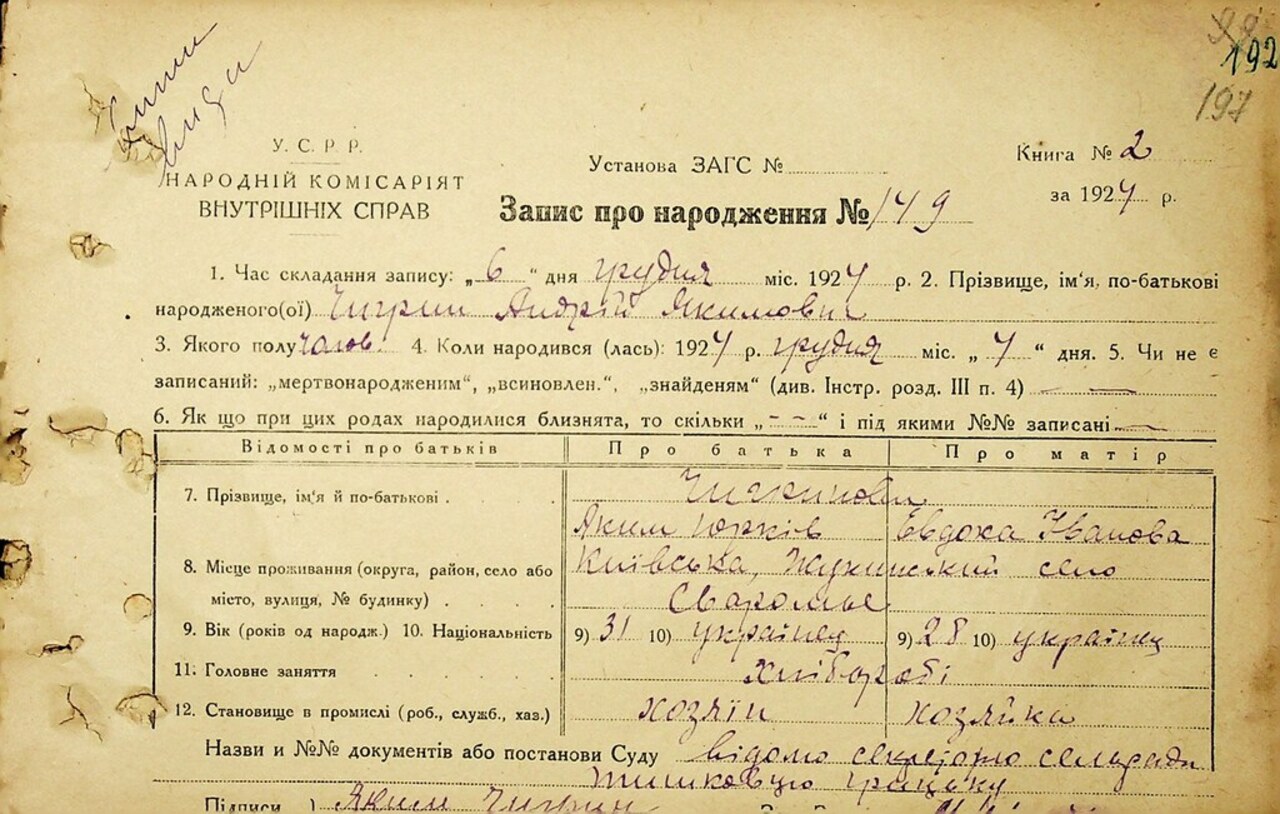 192
197
У. С. Р. Р.
НАРОДНІЙ КОМІСАРІЯТ
ВНУТРІШНІХ СПРАВ
Установа ЗАГС №
Книга № 2
за 1924 р.
Запис про народження № 149
1. Час складання запису: „6“ дня грудня міс. 1924 р. 2. Прізвище, ім'я, по-батькові
народженого(ої) Чигрин Андрій Якимович
3. Якого полу чолов. 4. Коли народився (лась): 1924 р. грудня міс. „4“ дня. 5. Чи не є
записаний: „мертвонародженим“, „всиновлен.“, „знайденям“ (див. Інстр. розд. III п. 4) —
6. Як що при цих родах народилися близнята, то скільки „- -“ і під якими №№ записані —
Відомості про батьків Про батька Про матір
7. Прізвище, ім'я й по-батькові
Яким Юрків Евдоха Іванова
8. Місце проживання (округа, район, село або
місто, вулиця, № будинку)
Київська, село
Сваромье
9. Вік (років од народж.) 10. Національність 9) 31 10) українец 9) 28 10) українец
11. Головне заняття хлібороби
12. Становище в промислі (роб., служб., хаз.) хозяїн хозяйка
Назви и №№ документів або постанови Суду відомо секретарю сельради
Підписи ) Яким Чигрин